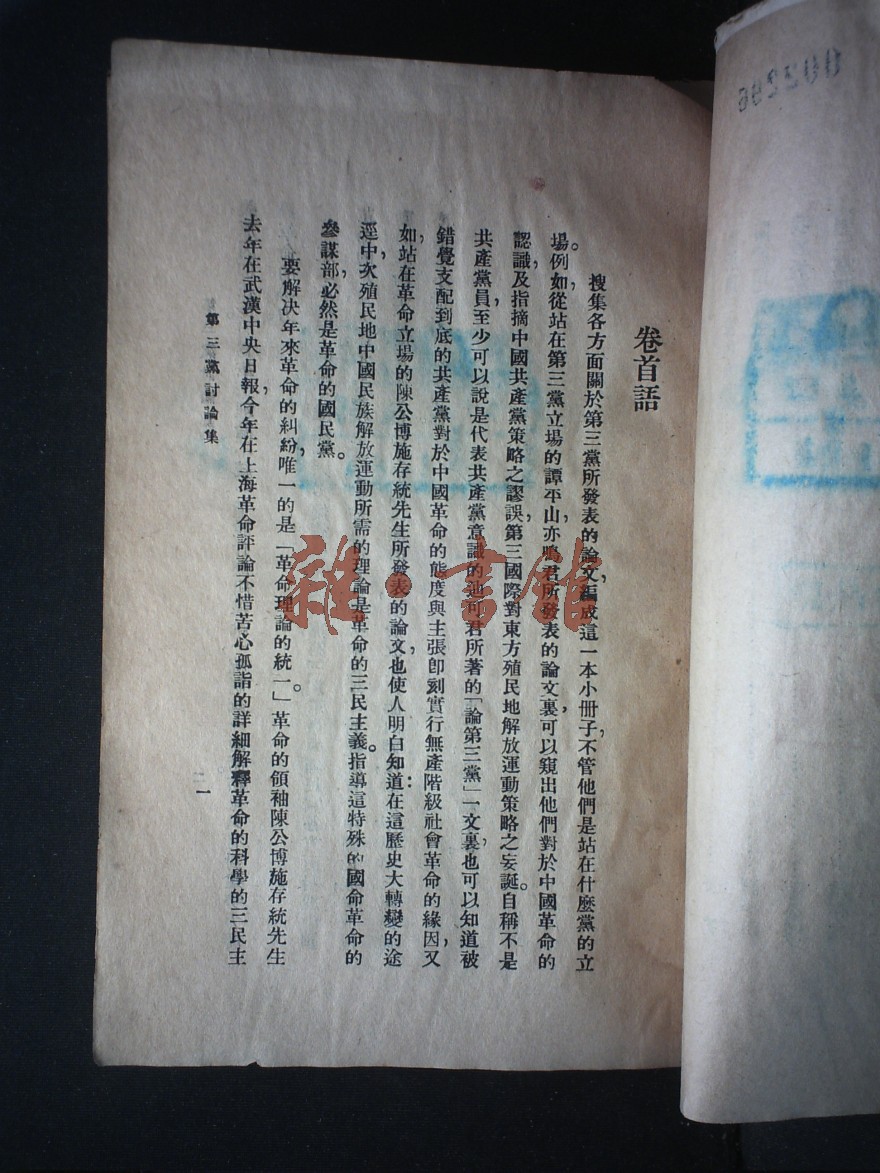 卷首語
搜集各方面關於第三黨所發表的論文，編成這一本小冊子，不管他們是站在什麼黨的立
場。例如，從站在第三黨立場的譚平山，亦鳴君所發表的論文裏，可以窺出他們對於中國革命的
認識，及指摘中國共產黨策略之謬誤，第三國際對東方殖民地解放運動策略之妄誕。自稱不是
共產黨員，至少可以說是代表共產黨意識的池可君所著的「論第三黨」一文裏，也可以知道被
錯覺支配到底的共產黨對於中國革命的態度與主張卽刻實行無產階級社會革命的緣因，又
如，站在革命立場的陳公博施存統先生所發表的論文，也使人明白知道：在這歷史大轉變的途
逕中，次殖民地中國民族解放運動所需的理論是革命的三民主義。指導這特殊的國命革命的
參謀部，必然是革命的國民黨。
要解決年來革命的糾紛，唯一的是「革命理論的統一。」革命的領袖陳公博施存統先生
去年在武漢中央日報，今年在上海革命評論不惜苦心孤詣的詳細解釋革命的科學的三民主
第三黨討論集
一
002296
雜·書館